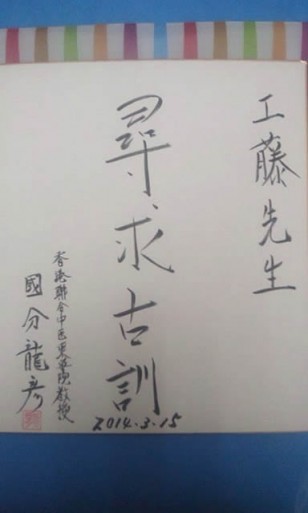 工藤先生
尋求古訓
2014.3.15
香港聯合中医薬学院教授
國分龍彦